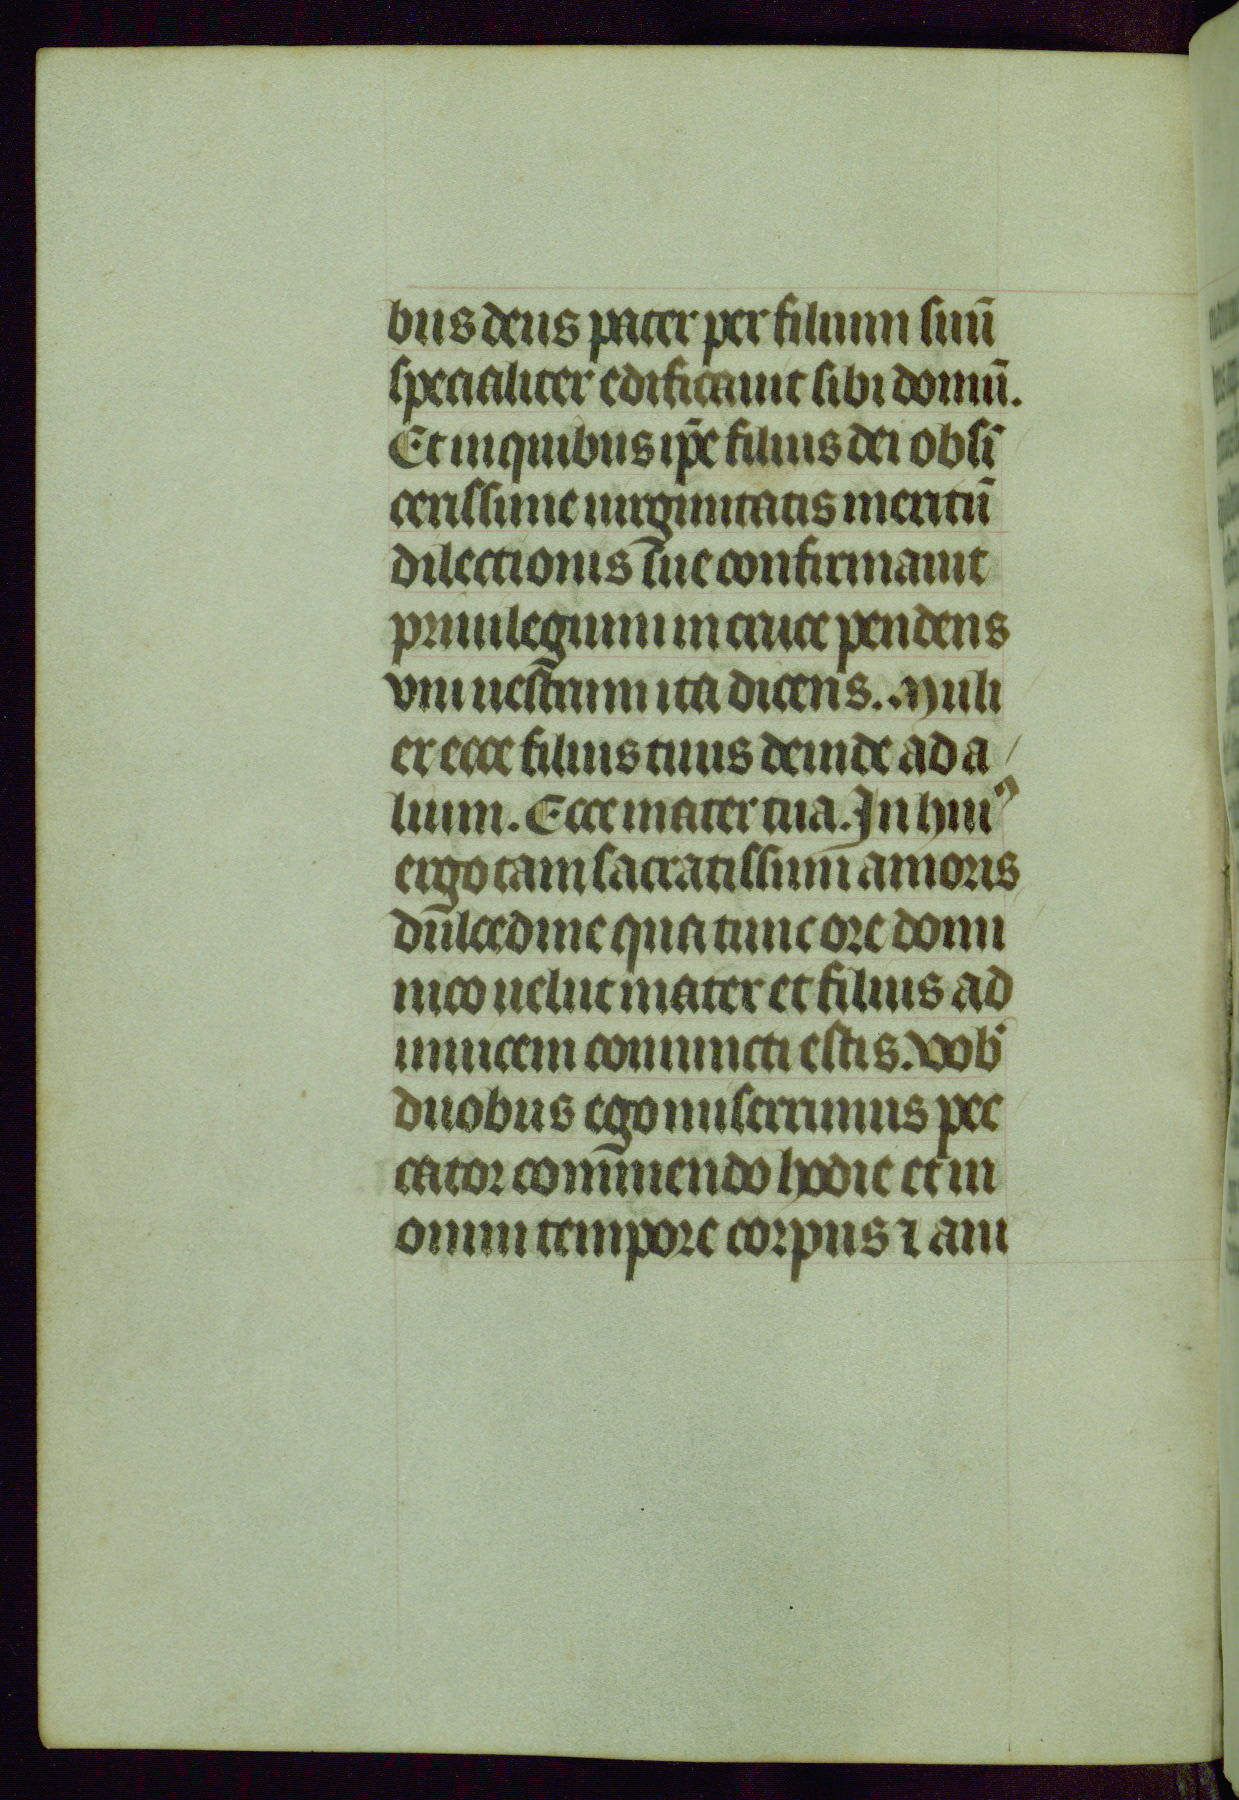 bus deus pater per filium suū
specialiter edificauit sibi domū.
Et in quibus ip̄e filius dei ob sī
cerissime uirginitatis meritū
dilectionis sue confirmauit
priuilegium in cruce pendens
vni uestrum ita dicens. Muli
er ecce filius tuus deinde ad a
lium. Ecce mater tua. In huiꝰ
ergo tam sacratissimi amoris
dulcedine qua tunc ore domi
nico uelut mater et filius ad
inuicem coniuncti estis. vob̾
duobus ego miserrimus pec
cator com̄mendo hodie et in
omni tempore corpus ⁊ ani